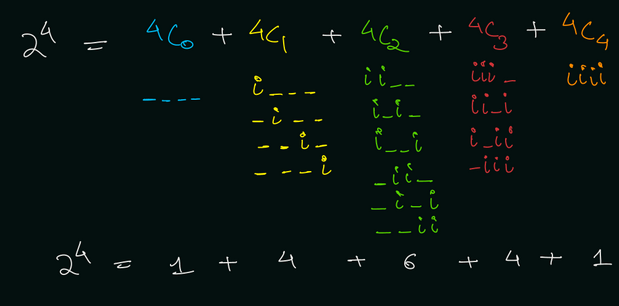 2⁴ = 4C₀ + 4C₁ + 4C₂ + 4C₃ + 4C₄
_ _ _ _   i _ _ _   i i _ _   i i i _   i i i i
_ i _ _   i _ i _   i i _ i
_ _ i _   i _ _ i   i _ i i
_ _ _ i   _ i i _   _ i i i
_ i _ i
_ _ i i
2⁴ = 1 + 4 + 6 + 4 + 1